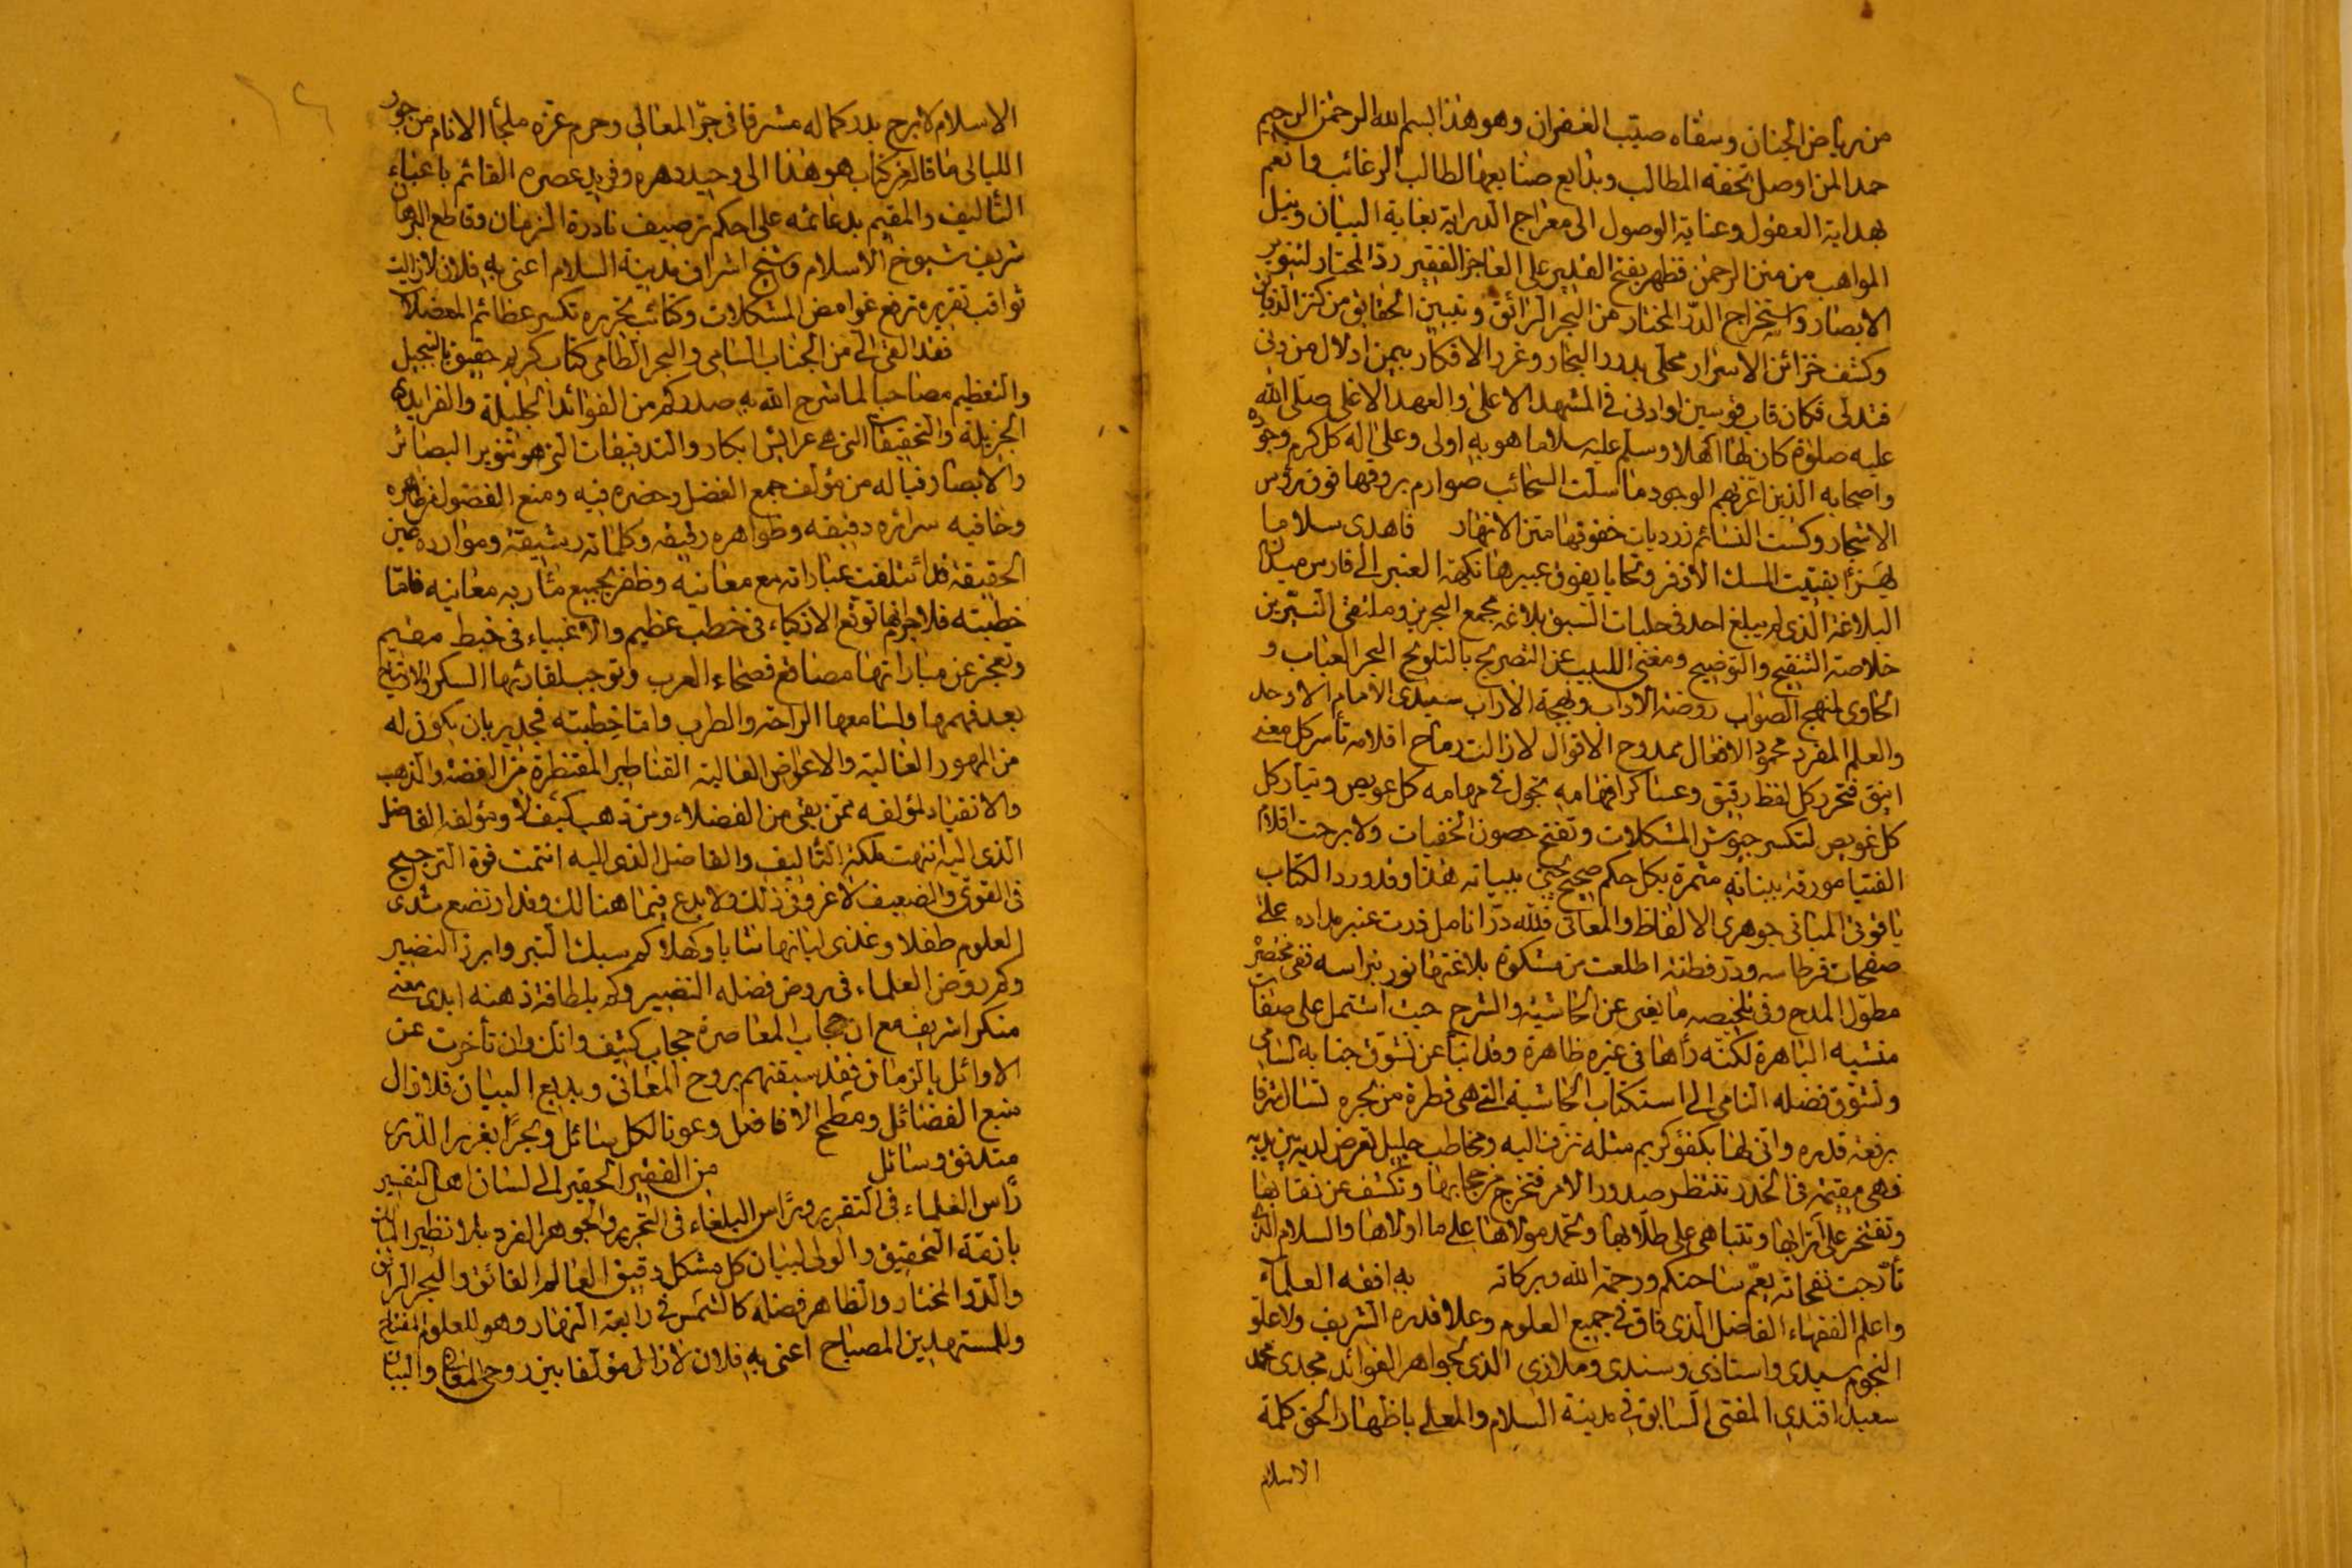 من رياض الجنان وسقاه صيّب الغفران وهو هذا بسم الله الرحمن الرحيم
حمدا لمن اوصل تحفة المطالب وبدايع صنايعها لطالب الرغائب وانعم
بهداية العقول وعناية الوصول الى معراج الدراية بغاية البيان ونيل
المواهب من منن الرحمن فظهر بفتح القدير على العاجز الفقير ردّ المحتار لتنوير
الابصار واستخراج الدرّ المختار من البحر الرائق وتبيين الحقايق من كنز الدقائق
وكشف خزائن الاسرار محلّى بدرر البحار وغرر الافكار بيمن ادلال من دنى
فتدلى فكان قاب قوسين او ادنى في المشهد الاعلى والعهد الاغلى صلى الله
عليه صلوة كان لها اهلا وسلم عليه سلاما هو به اولى وعلى اله كل كرم وجود
واصحابه الذين اغرّ بهم الوجود ما سلّت السحائب صوارم بروقها فوق رؤس
الاشجار وكست النسائم زرديات خفوقها متن الانهار فاهدى سلاما
يهزأ بفتيت المسك الاذفر وتحايا يفوق عبيرها نكهة العنبر الى فارس ميدان
البلاغة الذي لم يبلغ احد في حلبات السبق بلاغه مجمع البحرين وملتقى النيّرين
خلاصة التنقيح والتوضيح ومغنى اللبيب عن التصريح بالتلويح البحر العباب و
الحاوى لمنهج الصواب روضة الآداب وبهجة الاراب سيدى الامام الاوحد
والعلم المفرد محمود الافعال ممدوح الاقوال لازالت رماح اقلامه تأسر كل معنى
انيق فتحرر كل لفظ رقيق وعساكر افهامه تجول في مهامه كل عويص وتيار كل
كل غويص لتكسر جيوش المشكلات وتفتح حصون الخفيات ولا برحت اقلام
الفتيا مورقة ببنانه مثمرة بكل حكم صحيح يجنى ببيانه هذا وقد ورد الكتاب
ياقوتى المبانى جوهرى الالفاظ والمعانى فلله درّ انامل ذرت عنبر مداده على
صفحات قرطاسه ودرّ فطنة اطلعت من مشكوة بلاغتها نور نبراسه ففى مختصره
مطوّل المدح وفى تلخيصه ما يغنى عن الحاشية والشرح حيث اشتمل على صفات
منشيه الباهرة لكنّه رأها فى غيره ظاهرة وقد انبأ عن تشوّق جنابه السامى
وتشوّق فضله النامى الى استكتاب الحاشية التى هى قطرة من بحره لتنال شرفا
برفعة قدره وانى لها بكفؤ كريم مثله تزف اليه ومخاطب جليل تعرض لديه بين يديه
فهى مقيمة فى الخدر تنتظر صدور الامر فتخرج من حجابها وتكشف عن نقابها
وتفتخر على اترابها وتتباهى على طلابها وتحمد مولاها على ما اولاها والسلام الذى
تأرجت نفحاته يعمّ ساحتكم ورحمة الله وبركاته به افقه العلمآء
واعلم الفقهاء الفاضل الذى فاق فى جميع العلوم وعلا قدره الشريف ولا علوّ
النجوم سيدى واستاذى وسندى وملاذى الذى بجواهر الفوائد مجدى محمد
سعيد افندى المفتى السابق فى مدينة السلام والمعلى باظهار الحق كلمة
الاسلام
الاسلام لا برح بدر كماله مشرقا فى جوّ المعالى وحرم عزه ملجأ الانام من جور
الليالى ما قاله من كتاب هو هذا الى وحيد دهره وفريد عصره القائم باعباء
التأليف والمقيم بدعائمه على احكم ترصيف نادرة الزمان وقاطع البرهان
شريف شيوخ الاسلام وشيخ اشراف مدينة السلام اعنى به فلان لازالت
ثواقب تقريره ترفع غوامض المشكلات وكتائب تحريره تكسر عظائم المعضلات
فقد القى الى من الجناب السامى والبحر الطامى كتاب كريم حقيق بالتبجيل
والتعظيم مصاحبا لما شرح الله به صدركم من الفوائد الجليلة والفرايد
الجزيلة والتحقيقات التى هى عرايش ابكار والتدقيقات التى هو تنوير البصائر
والابصار فياله من مؤلف جمع الفضل وحضره فيه ومنع الفضول ظاهره
وخافيه سرائره دقيقه وظواهره رقيقه وكلماته رشيقة وموارده عين
الحقيقة قد ائتلفت عباراته مع معانيه وظفر بجميع مأربه معانيه فاما
خطبته فلا جرم انها توقع الاذكياء فى خطب عظيم والاغبياء فى خبط مقيم
وتعجز عن مباراتها مصاقع فصحاء العرب وتوجب لقارئها السكر والارتياح
بعد فهمها ولسامعها الراحة والطرب واما خطبته فجدير بان يكون له
من المهور الغالية والاعواض العالية القناطير المقنطرة من الفضة والذهب
والانقياد لمؤلفه ممن بقى من الفضلاء ومن ذهب كيف لا ومؤلفه الفاضل
الذى اليه انتهت ملكة التأليف والفاضل الذى اليه انتمت قوة الترجيح
فى القوىّ والضعيف لا غرو فى ذلك ولا بدع فيما هنالك وقد ارتضع ثدى
العلوم طفلا وغذى لبانها شابا وكهلا كم سبك التبر وابرز النضير
وكم روض العلماء فى روض فضله النضير وكم بلطافة ذهنه ابدى معنى
منكرا شريف مع ان حجاب المعاصرة حجاب كثيف وانك وان تأخرت عن
الاوائل بالزمان فقد سبقتهم بروح المعانى وبديع البيان فلازال
منبع الفضائل ومطمح الافاضل وعونا لكل سائل وبحرا بغرر الدرر
متدفق وسائل من الفقير الحقير الى لسان اهل التفسير
رأس العلماء فى التقرير ونبراس البلغاء فى التحرير والجوهر الفرد بلا نظير
بازمّة التحقيق والولى لبيان كل مشكل دقيق العالم الفائق والبحر الرائق
والدّر المختار والظاهر فضله كالشمس فى رابعة النهار وهو للعلوم المفتاح
وللمستهدين المصباح اعنى به فلان لازال مؤلفا بين روحى المعانى والبيان